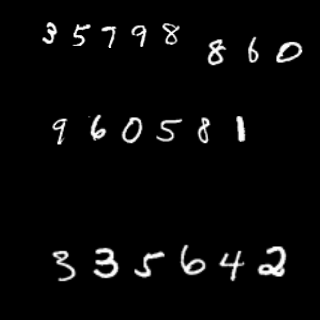 3 5 7 9 8
8 6 0
9 6 0 5 8 1
3 3 5 6 4 2